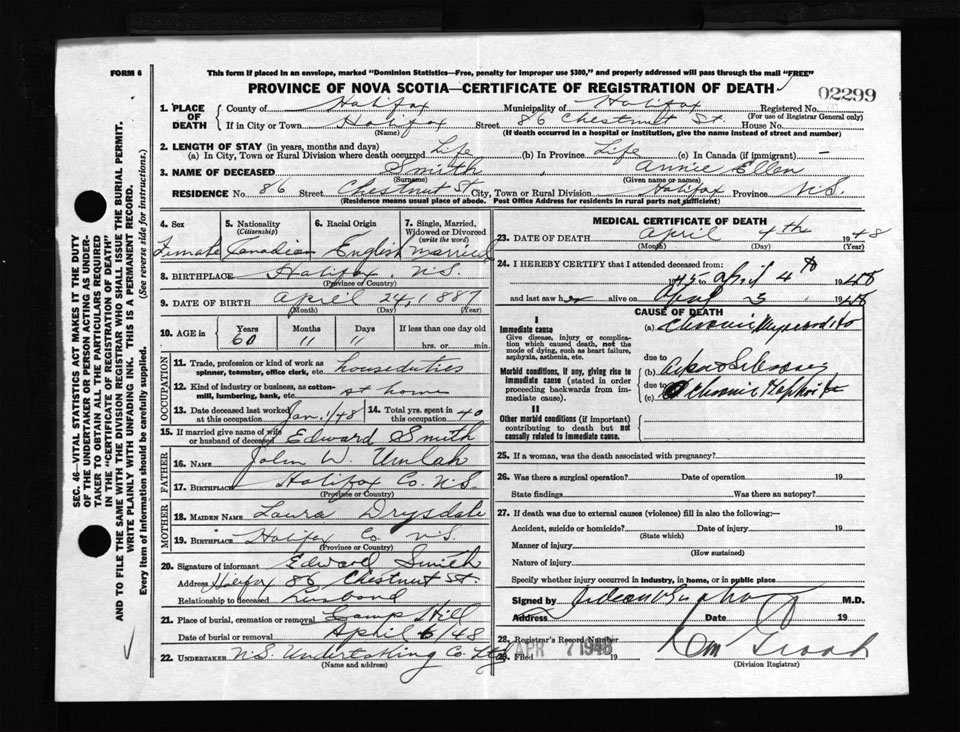 FORM 6
This form if placed in an envelope, marked "Dominion Statistics—Free, penalty for improper use $300," and properly addressed will pass through the mail "FREE"
PROVINCE OF NOVA SCOTIA—CERTIFICATE OF REGISTRATION OF DEATH
02299
1. PLACE OF DEATH County of Halifax Municipality of Halifax Registered No.
(For use of Registrar General only)
If in City or Town Halifax Street 86 Chestnut St. House No.
(Name) (If death occurred in a hospital or institution, give the name instead of street and number)
2. LENGTH OF STAY (in years, months and days)
(a) In City, Town or Rural Division where death occurred Life (b) In Province Life (c) In Canada (if immigrant) —
3. NAME OF DECEASED Smith Annie Ellen
(Surname) (Given name or names)
RESIDENCE No. 86 Street Chestnut St. City, Town or Rural Division Halifax Province N.S.
(Residence means usual place of abode. Post Office Address for residents in rural parts not sufficient)
4. Sex 5. Nationality (Citizenship) 6. Racial Origin 7. Single, Married, Widowed or Divorced (write the word)
Female Canadian English married
8. BIRTHPLACE Halifax, N.S.
(Province or Country)
9. DATE OF BIRTH April 24, 1887
(Month) (Day) (Year)
10. AGE in Years Months Days If less than one day old
60 11 11 hrs. or min.
OCCUPATION
11. Trade, profession or kind of work as spinner, teamster, office clerk, etc. houseduties
12. Kind of industry or business, as cotton-mill, lumbering, bank, etc. at home
13. Date deceased last worked at this occupation Jan. 1/48 14. Total yrs. spent in this occupation 40
15. If married give name of wife or husband of deceased Edward Smith
FATHER
16. NAME John W. Umlah
17. BIRTHPLACE Halifax Co. N.S.
(Province or Country)
MOTHER
18. MAIDEN NAME Laura Drysdale
19. BIRTHPLACE Halifax Co. N.S.
(Province or Country)
20. Signature of informant Edward Smith
Address Halifax 86 Chestnut St.
Relationship to deceased Husband
21. Place of burial, cremation or removal Camp Hill
Date of burial or removal April 6/48
22. UNDERTAKER N.S. Undertaking Co. Ltd
(Name and address)
MEDICAL CERTIFICATE OF DEATH
23. DATE OF DEATH April 4th 1948
(Month) (Day) (Year)
24. I HEREBY CERTIFY that I attended deceased from:
1945 April 4th 1948
and last saw her alive on April 3 1948
CAUSE OF DEATH
I
Immediate cause (a) Chronic
Give disease, injury or complication which caused death, not the mode of dying, such as heart failure, asphyxia, asthenia, etc.
due to
Morbid conditions, if any, giving rise to immediate cause (stated in order proceeding backwards from immediate cause). (b)
due to
(c) Chronic
II
Other morbid conditions (if important) contributing to death but not causally related to immediate cause.
25. If a woman, was the death associated with pregnancy?
26. Was there a surgical operation? Date of operation 19
State findings Was there an autopsy?
27. If death was due to external causes (violence) fill in also the following:—
Accident, suicide or homicide? Date of injury 19
(State which)
Manner of injury
(How sustained)
Nature of injury
Specify whether injury occurred in industry, in home, or in public place
Signed by M.D.
Address Date 19
28. Registrar's Record Number
29. Filed APR 7 1948 19
(Division Registrar)
SEC. 46—VITAL STATISTICS ACT MAKES IT THE DUTY
OF THE UNDERTAKER OR PERSON ACTING AS UNDER-
TAKER TO OBTAIN ALL THE PARTICULARS REQUIRED
IN THE "CERTIFICATE OF REGISTRATION OF DEATH"
AND TO FILE THE SAME WITH THE DIVISION REGISTRAR WHO SHALL ISSUE THE BURIAL PERMIT.
WRITE PLAINLY WITH UNFADING INK. THIS IS A PERMANENT RECORD.
Every item of information should be carefully supplied. (See reverse side for instructions.)